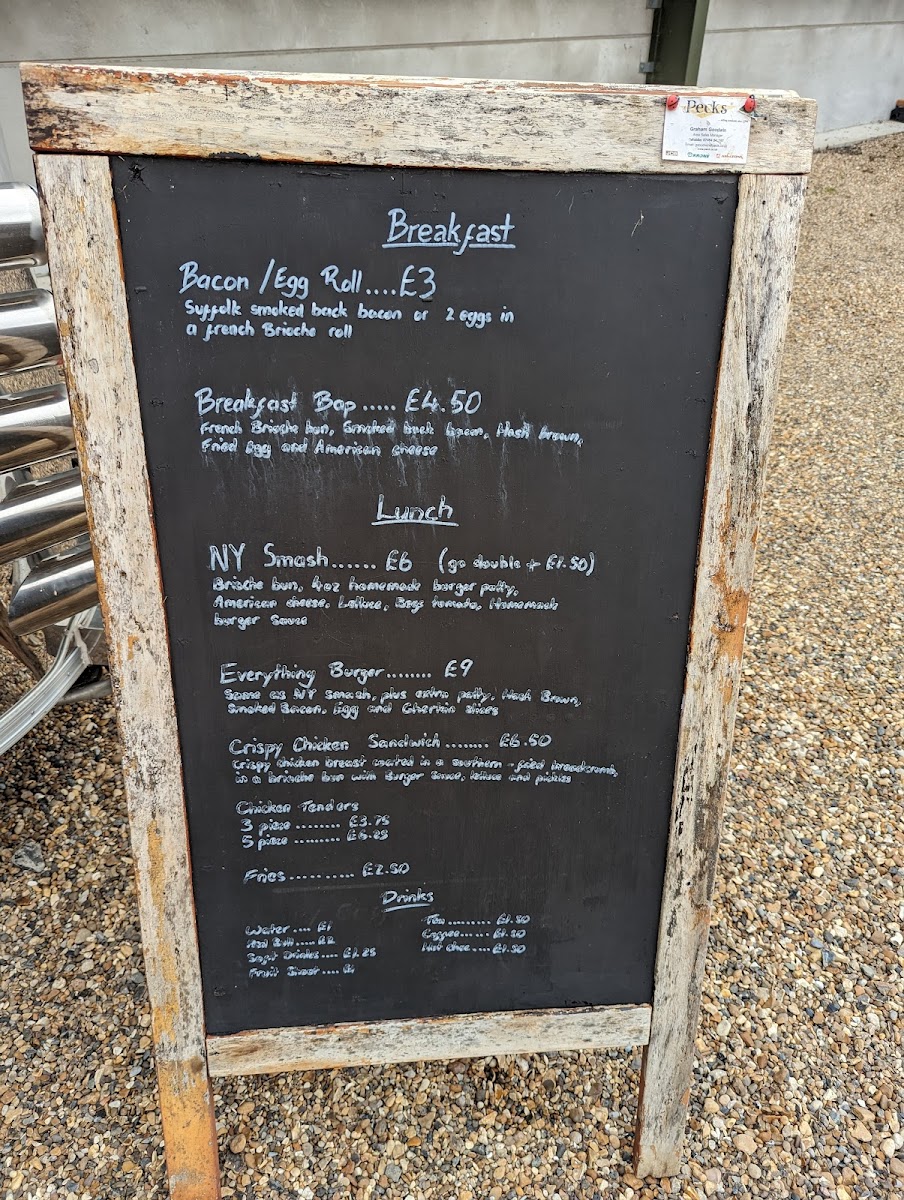 Pecks
Graham Sandell
Area Sales Manager
Breakfast
Bacon/Egg Roll....£3
Suffolk smoked back bacon or 2 eggs in
a french Brioche roll
Breakfast Bap..... £4.50
French Brioche bun, Smoked back bacon, Hash brown,
Fried Egg and American cheese
Lunch
NY Smash...... £6 (go double + £1.50)
Brioche bun, 4oz homemade burger patty,
American cheese, Lettuce, Beef tomato, Homemade
burger Sauce
Everything Burger........ £9
Same as NY smash, plus extra patty, Hash Brown,
Smoked Bacon, Egg and Gherkin slices
Crispy Chicken Sandwich........ £6.50
Crispy chicken breast coated in a southern-fried breadcrumb,
in a brioche bun with Burger sauce, lettuce and pickles
Chicken Tenders
3 piece ........ £3.75
5 piece ......... £6.25
Fries.......... £2.50
Drinks
Water .... £1
Red Bull ..... £2
Soft Drinks.... £1.25
Fruit Shoot .... £1
Tea ......... £1.50
Coffee...... £1.50
Hot Choc .... £1.50